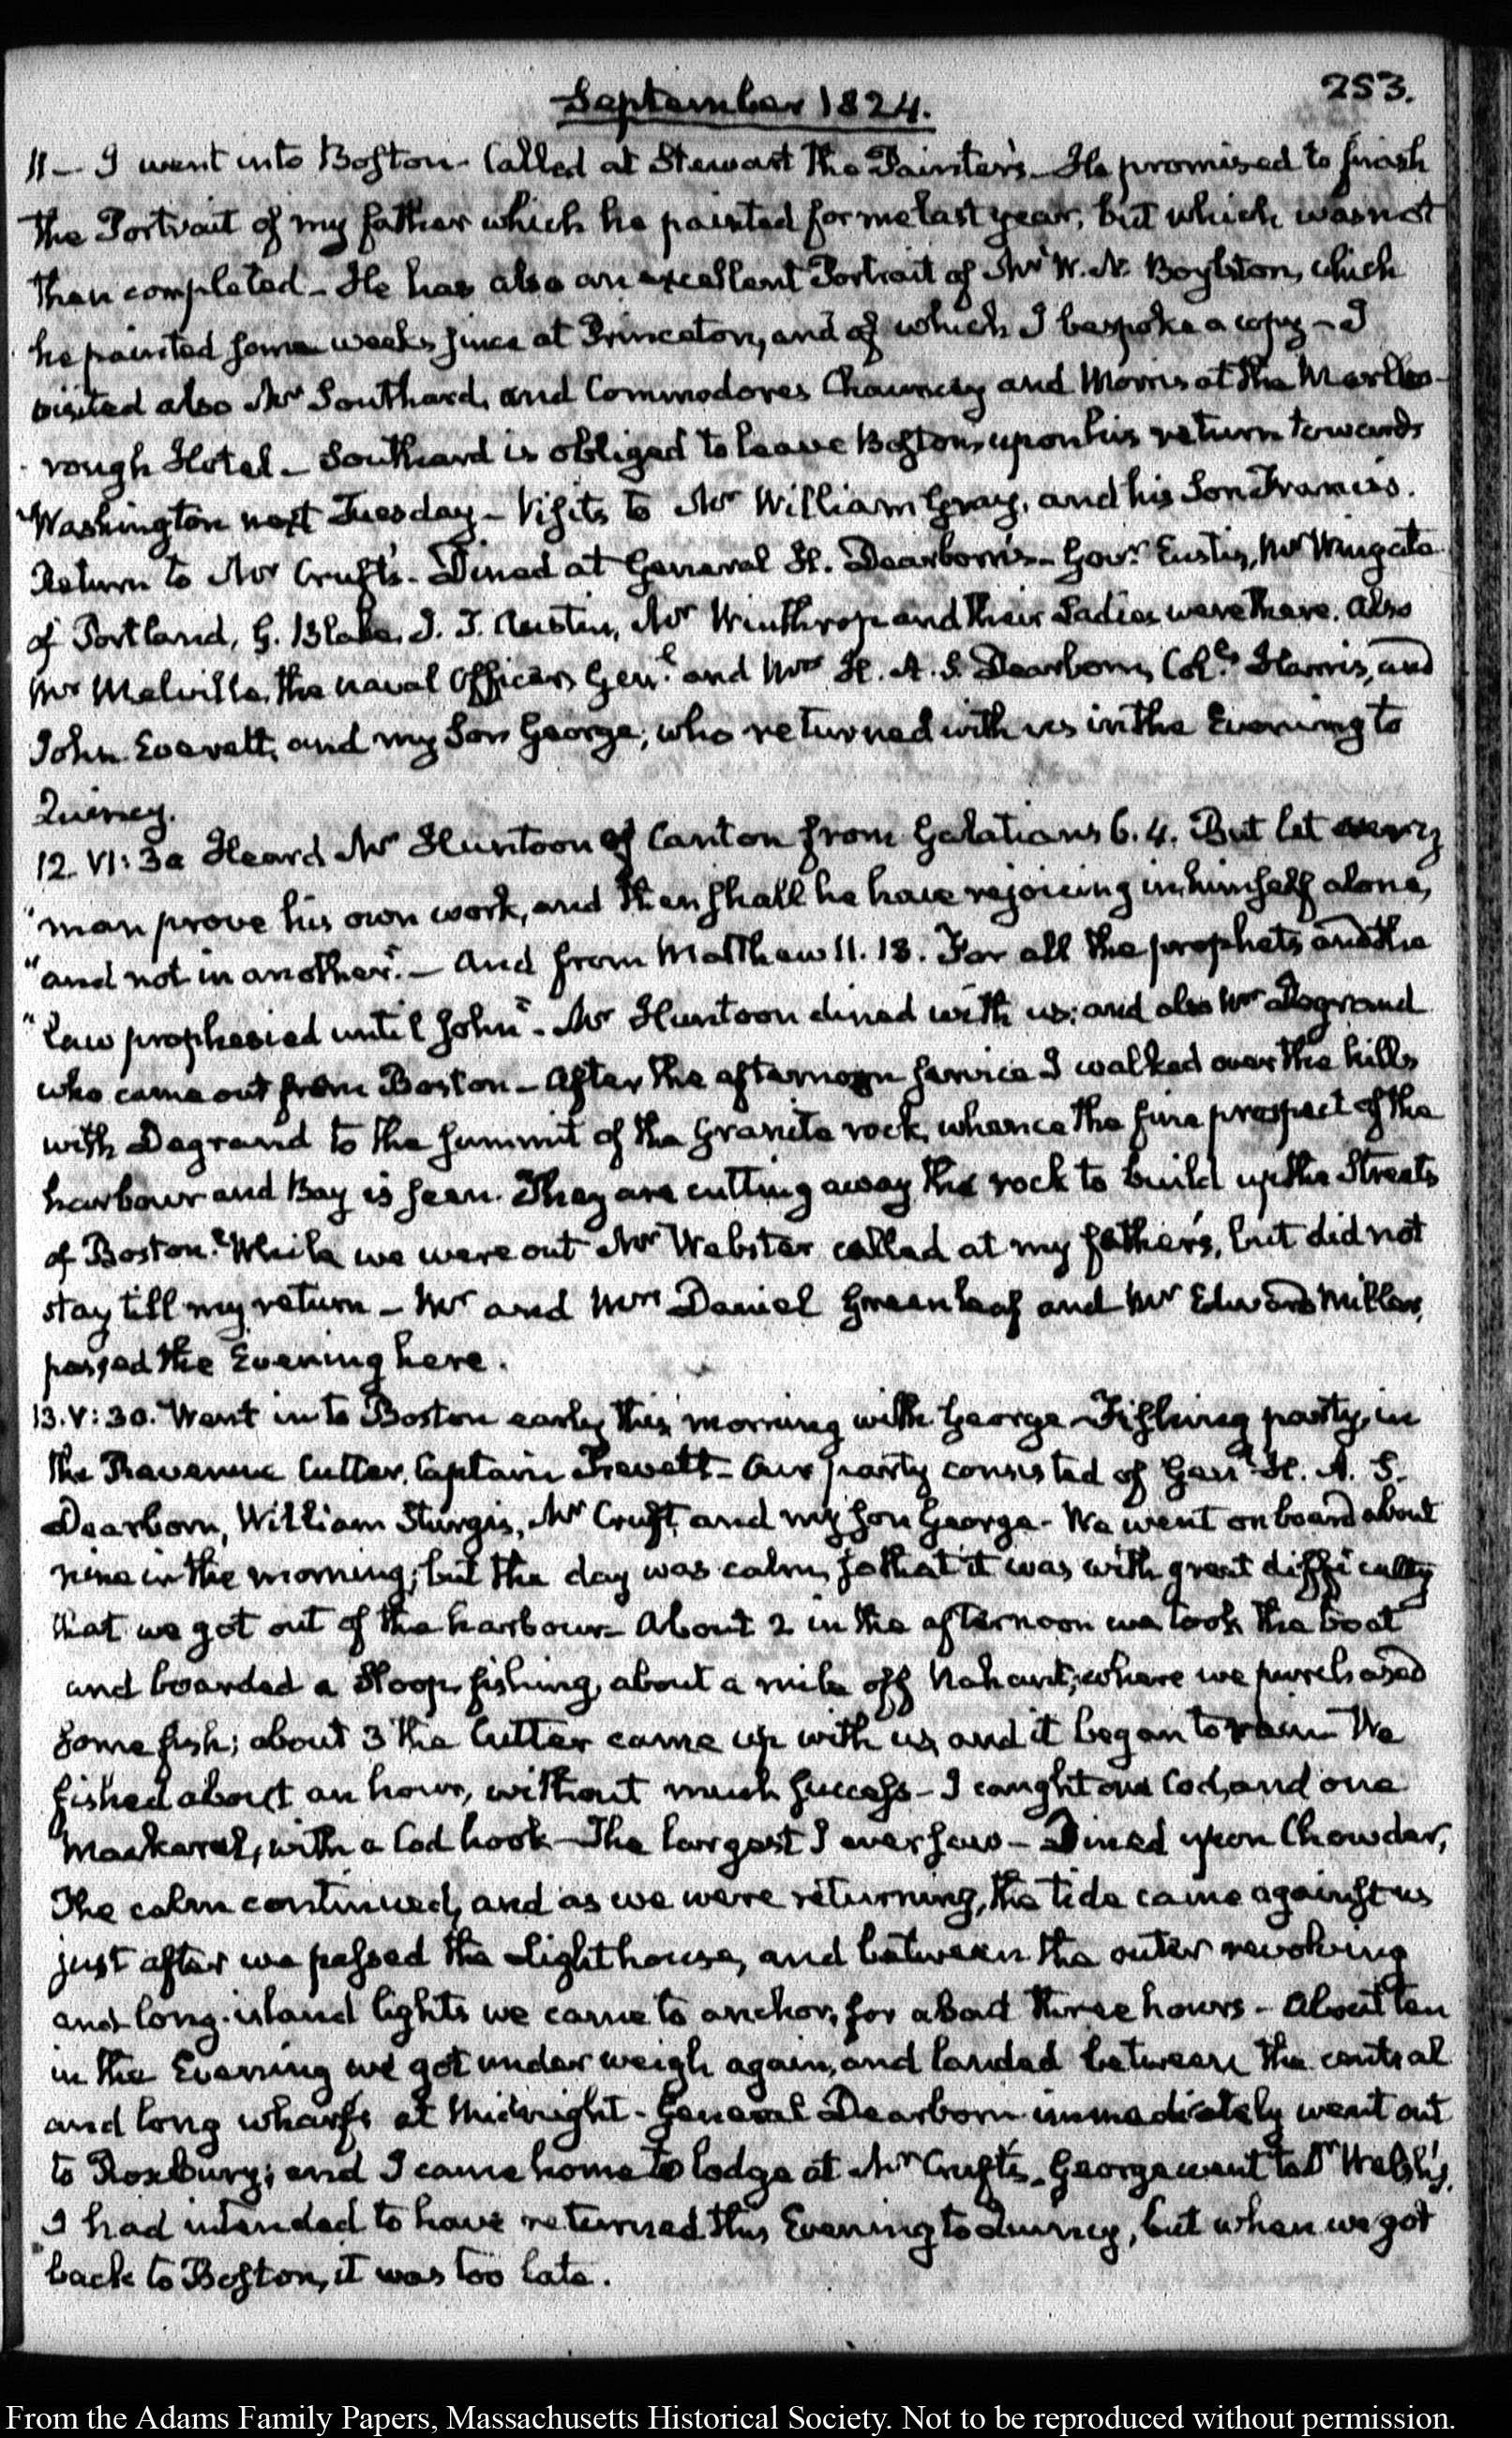 253.
September 1824.
11— I went into Boston. Called at Stewart the Painter's— He promised to finish
the Portrait of my father which he painted for me last year, but which was not
then completed— He has also an excellent Portrait of Mr W. N. Boylston, which
he painted some weeks since at Princeton, and of which I bespoke a copy— I
visited also Mr Southard, and Commodores Chauncey and Morris at the Marlbo-
rough Hotel— Southard is obliged to leave Boston, upon his return towards
Washington next Tuesday— Visits to Mr William Gray, and his Son Francis.
Return to Mr Cruft's— Dined at General H. Dearborn's— Govr. Eustis, Mr Wingate
of Portland, G. Blake, J. T. Austin, Mr Winthrop and their Ladies were there. Also
Mr Melville, the naval Officer, Genl. and Mrs H. A. S. Dearborn, Coll. Harris, and
John Everett, and my Son George, who returned with us in the Evening to
Quincy.
12. VI:30 Heard Mr Huntoon of Canton from Galatians 6. 4. But let every
"man prove his own work, and then shall he have rejoicing in himself alone,
"and not in another."— And from Matthew 11. 13. For all the prophets and the
"law prophesied until John"— Mr Huntoon dined with us; and also Mr Degrand
who came out from Boston— After the afternoon service I walked over the hills
with Degrand to the summit of the Granite rock, whence the fine prospect of the
harbour and Bay is seen. They are cutting away the rock to build up the Streets
of Boston. While we were out Mr Webster called at my father's, but did not
stay till my return— Mr and Mrs Daniel Greenleaf and Mr Edward Miller,
passed the Evening here.
13. V:30. Went in to Boston early this morning with George— Fishing party, in
the Revenue Cutter, Captain Trevett— Our party consisted of Genl H. A. S.
Dearborn, William Sturgis, Mr Cruft and my Son George— We went on board about
nine in the morning; but the day was calm, so that it was with great difficulty
that we got out of the harbour— About 2 in the afternoon we took the boat
and boarded a Sloop, fishing, about a mile off Nahant; where we purchased
some fish; about 3 the Cutter came up with us, and it began to rain— We
fished about an hour, without much success— I caught one Cod, and one
Mackarel, with a Cod hook— The largest I ever saw— Dined upon Chowder,
The calm continued, and as we were returning, the tide came against us
just after we passed the Lighthouse, and between the outer revolving
and long-island lights we came to anchor, for about three hours— About ten
in the Evening we got under weigh again, and landed between the central
and long wharfs at Midnight— General Dearborn immediately went out
to Roxbury; and I came home to lodge at Mr Cruft's— George went to Dr Welsh's,
I had intended to have returned this Evening to Quincy, but when we got
back to Boston, it was too late.
From the Adams Family Papers, Massachusetts Historical Society. Not to be reproduced without permission.